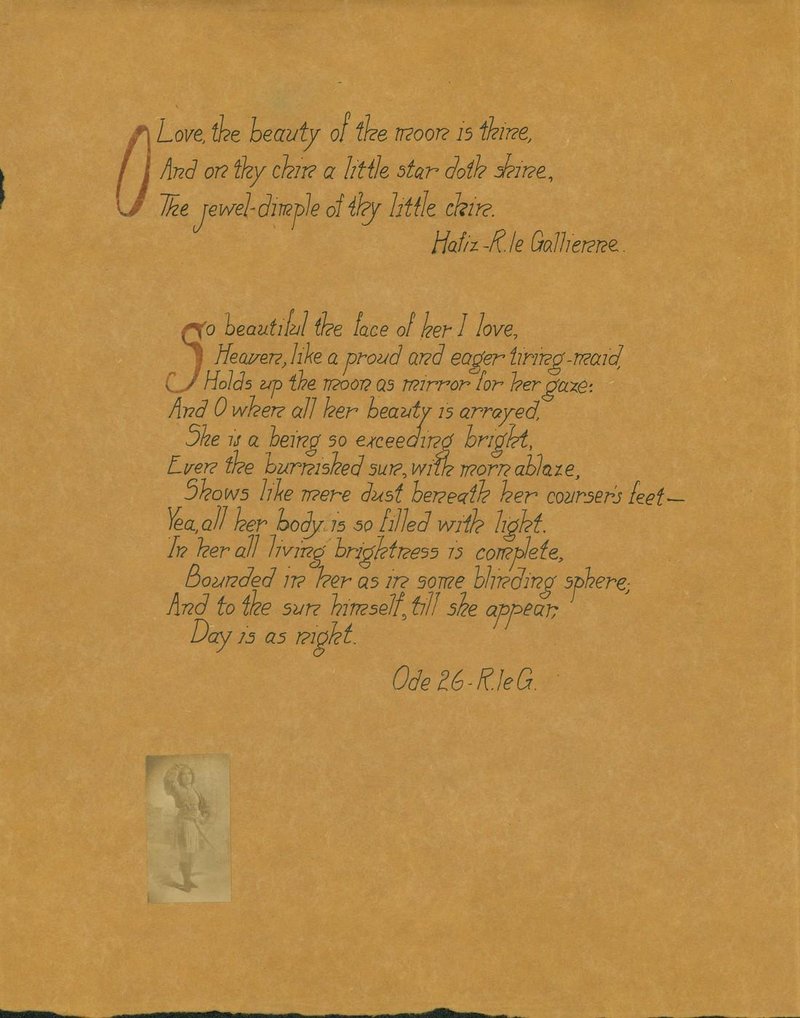 O Love, the beauty of the moon is thine,
And on thy chin a little star doth shine,
The jewel-dimple of thy little chin.
Hafiz - R. le Gallienne.
So beautiful the face of her I love,
Heaven, like a proud and eager tiring-maid,
Holds up the moon as mirror for her gaze:
And O when all her beauty is arrayed,
She is a being so exceeding bright,
Even the burnished sun, with morn ablaze,
Shows like mere dust beneath her courser's feet—
Yea, all her body is so filled with light.
In her all living brightness is complete,
Bounded in her as in some blinding sphere;
And to the sun himself, till she appear,
Day is as night.
Ode 26 - R. le G.